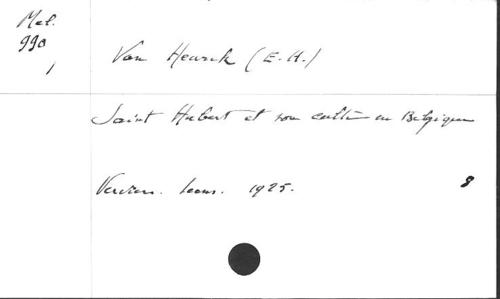 Mel.
990
1
Van Heurck (E. H.)
Saint Hubert et son culte en Belgique
Verviers. Leens. 1925.
8